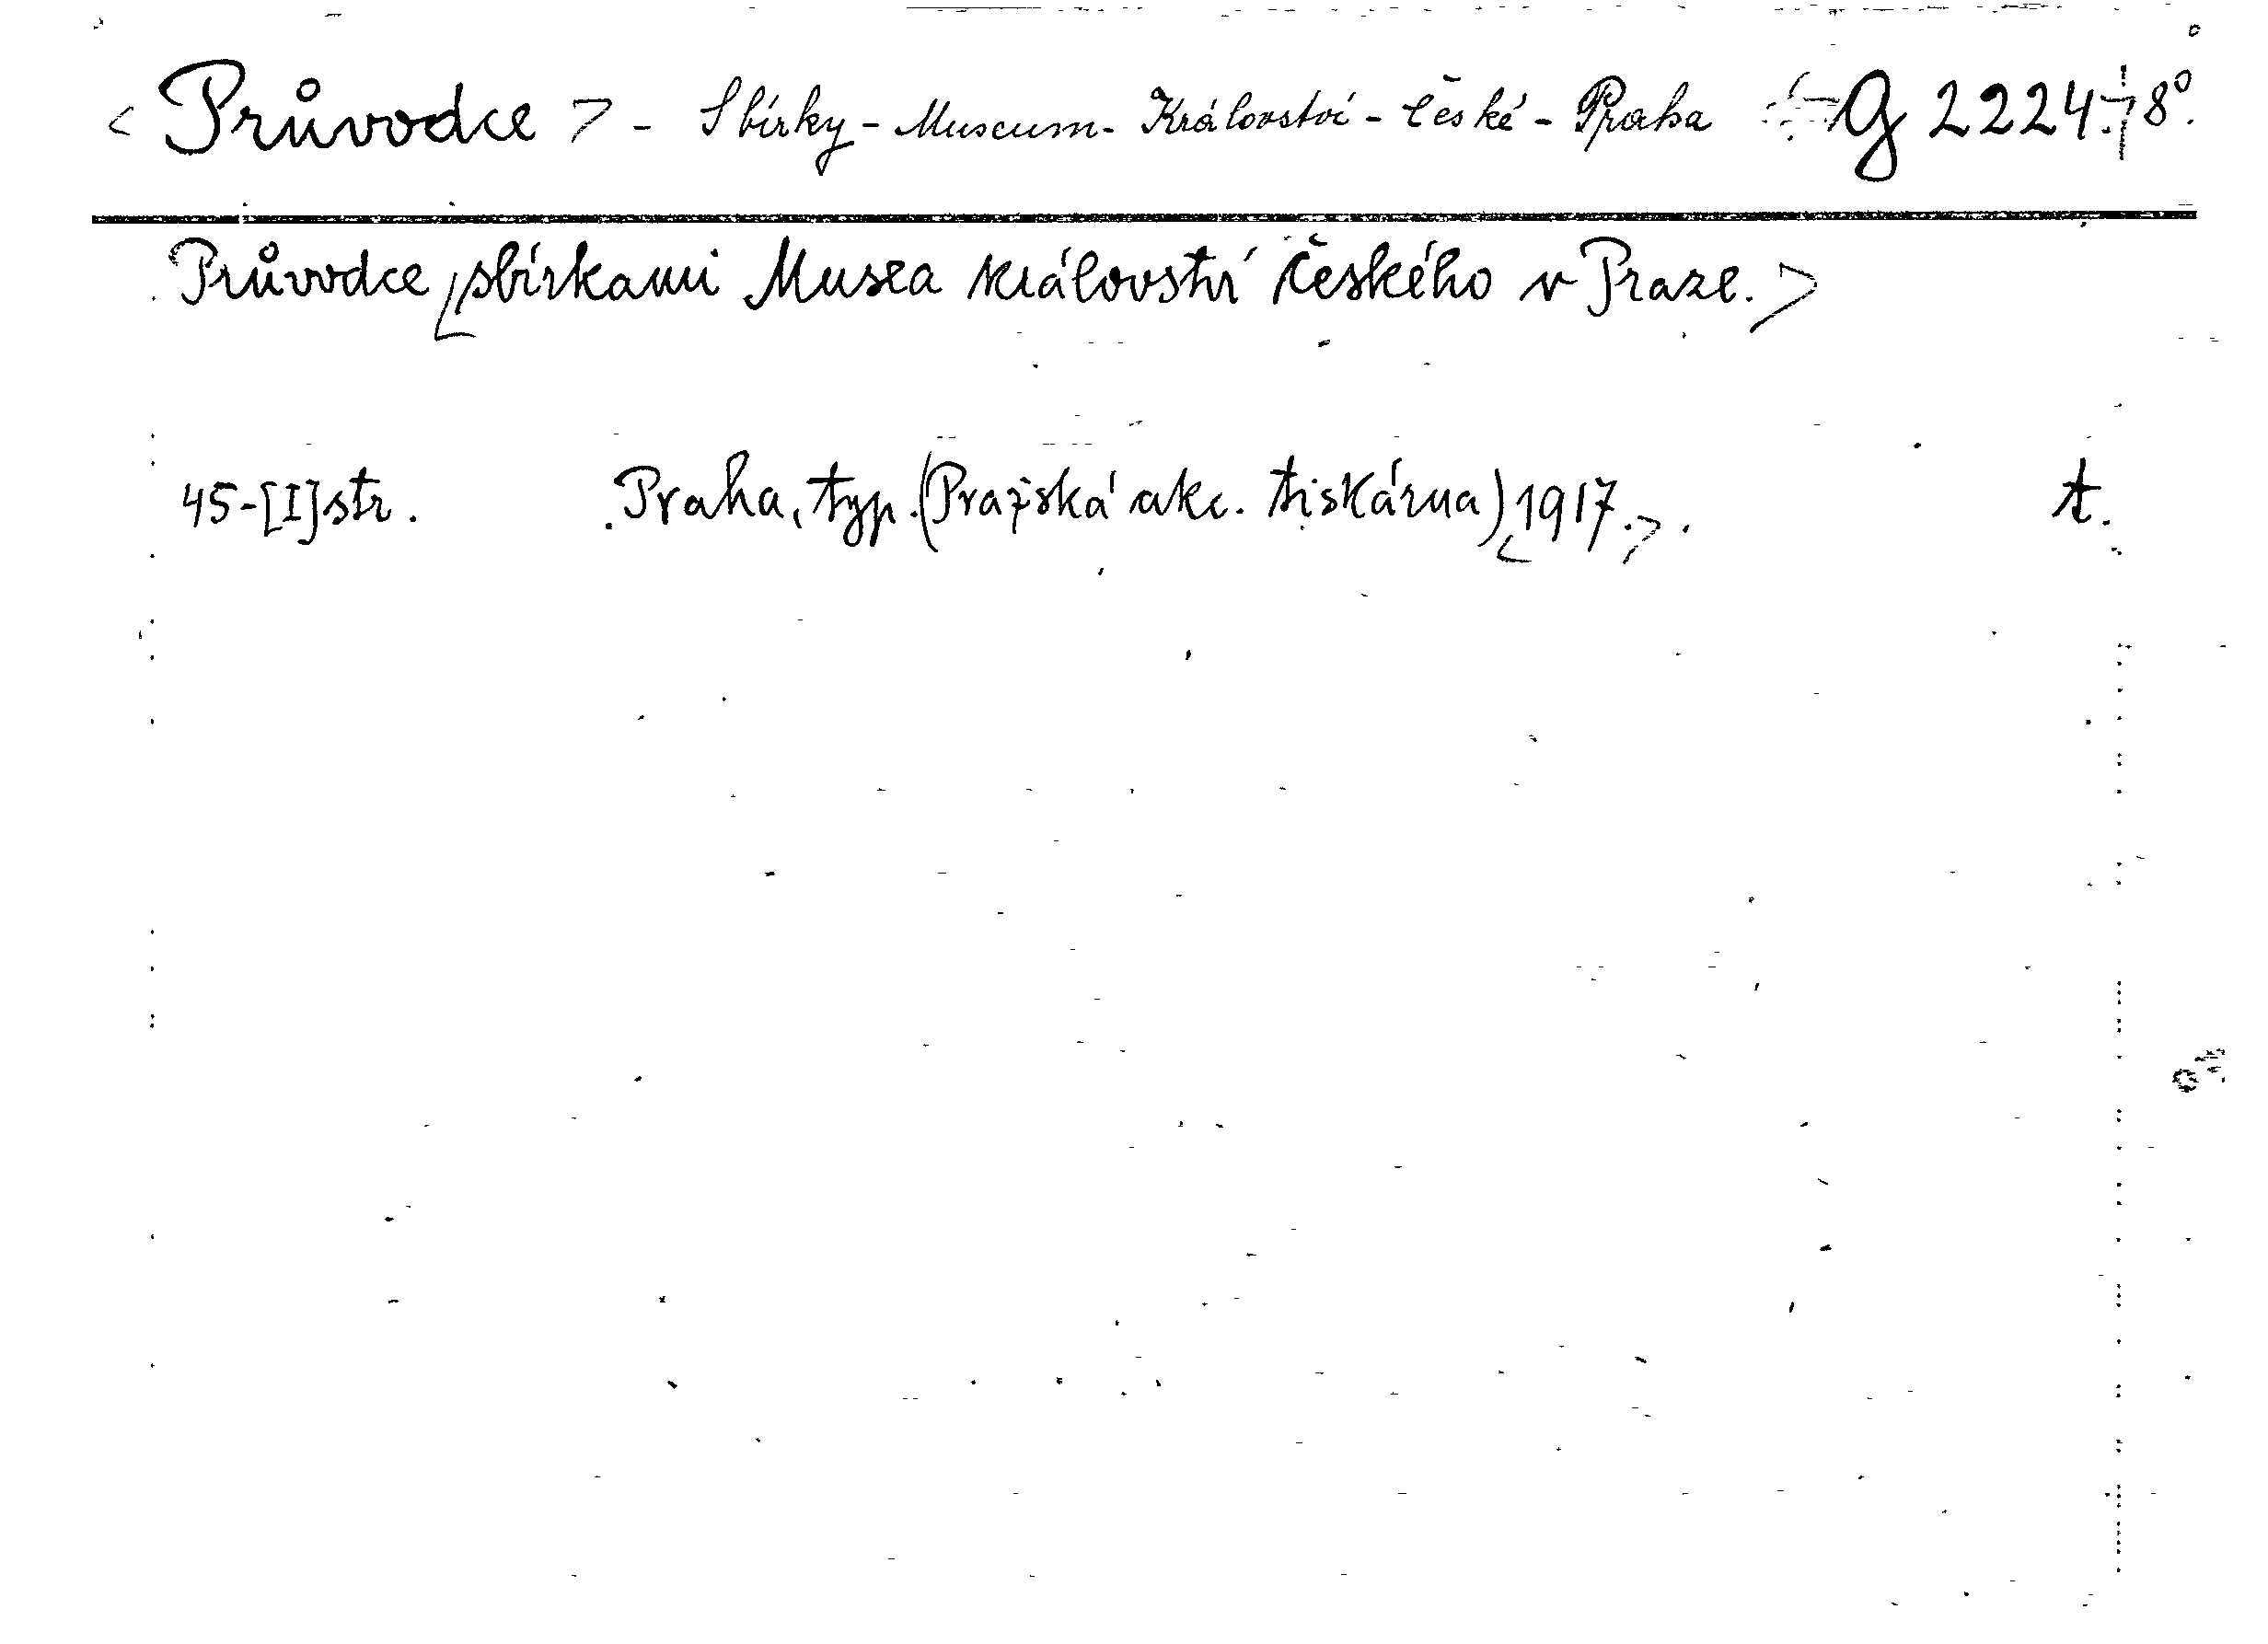 <Průvodce> - Sbírky - Museum - Království - České - Praha G 2224. 8°.
Průvodce <sbírkami Musea království Českého v Praze.>
45-[I]str. Praha, typ. (Pražská akc. tiskárna) <1917.>. t.